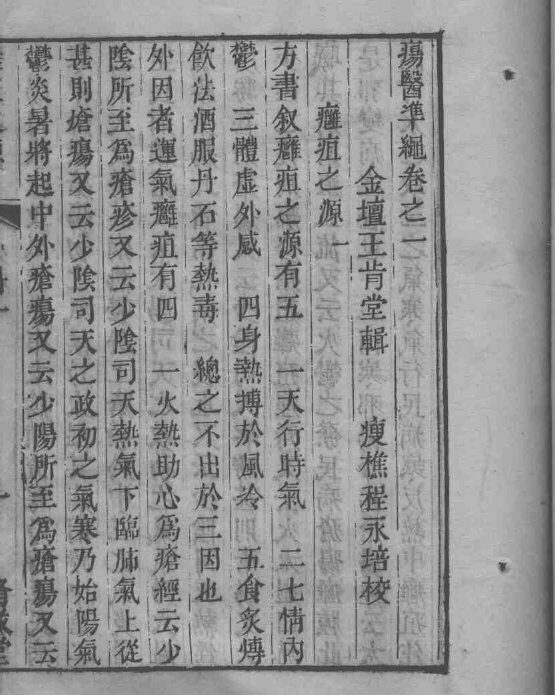 瘍醫準繩卷之一
金壇王肯堂輯　瘦樵程永培校
癰疽之源一
方書叙癰疽之源有五　一天行時氣　二七情內
鬱　三體虛外感　四身熱搏於風冷　五食炙煿
飲法酒服丹石等熱毒　總之不出於三因也
外因者運氣癰疽有四　一火熱助心爲瘡經云少
陰所至爲瘡疹又云少陰司天熱氣下臨肺氣上從
甚則瘡瘍又云少陰司天之政初之氣寒乃始陽氣
鬱炎暑將起中外瘡瘍又云少陽所至爲瘡瘍又云